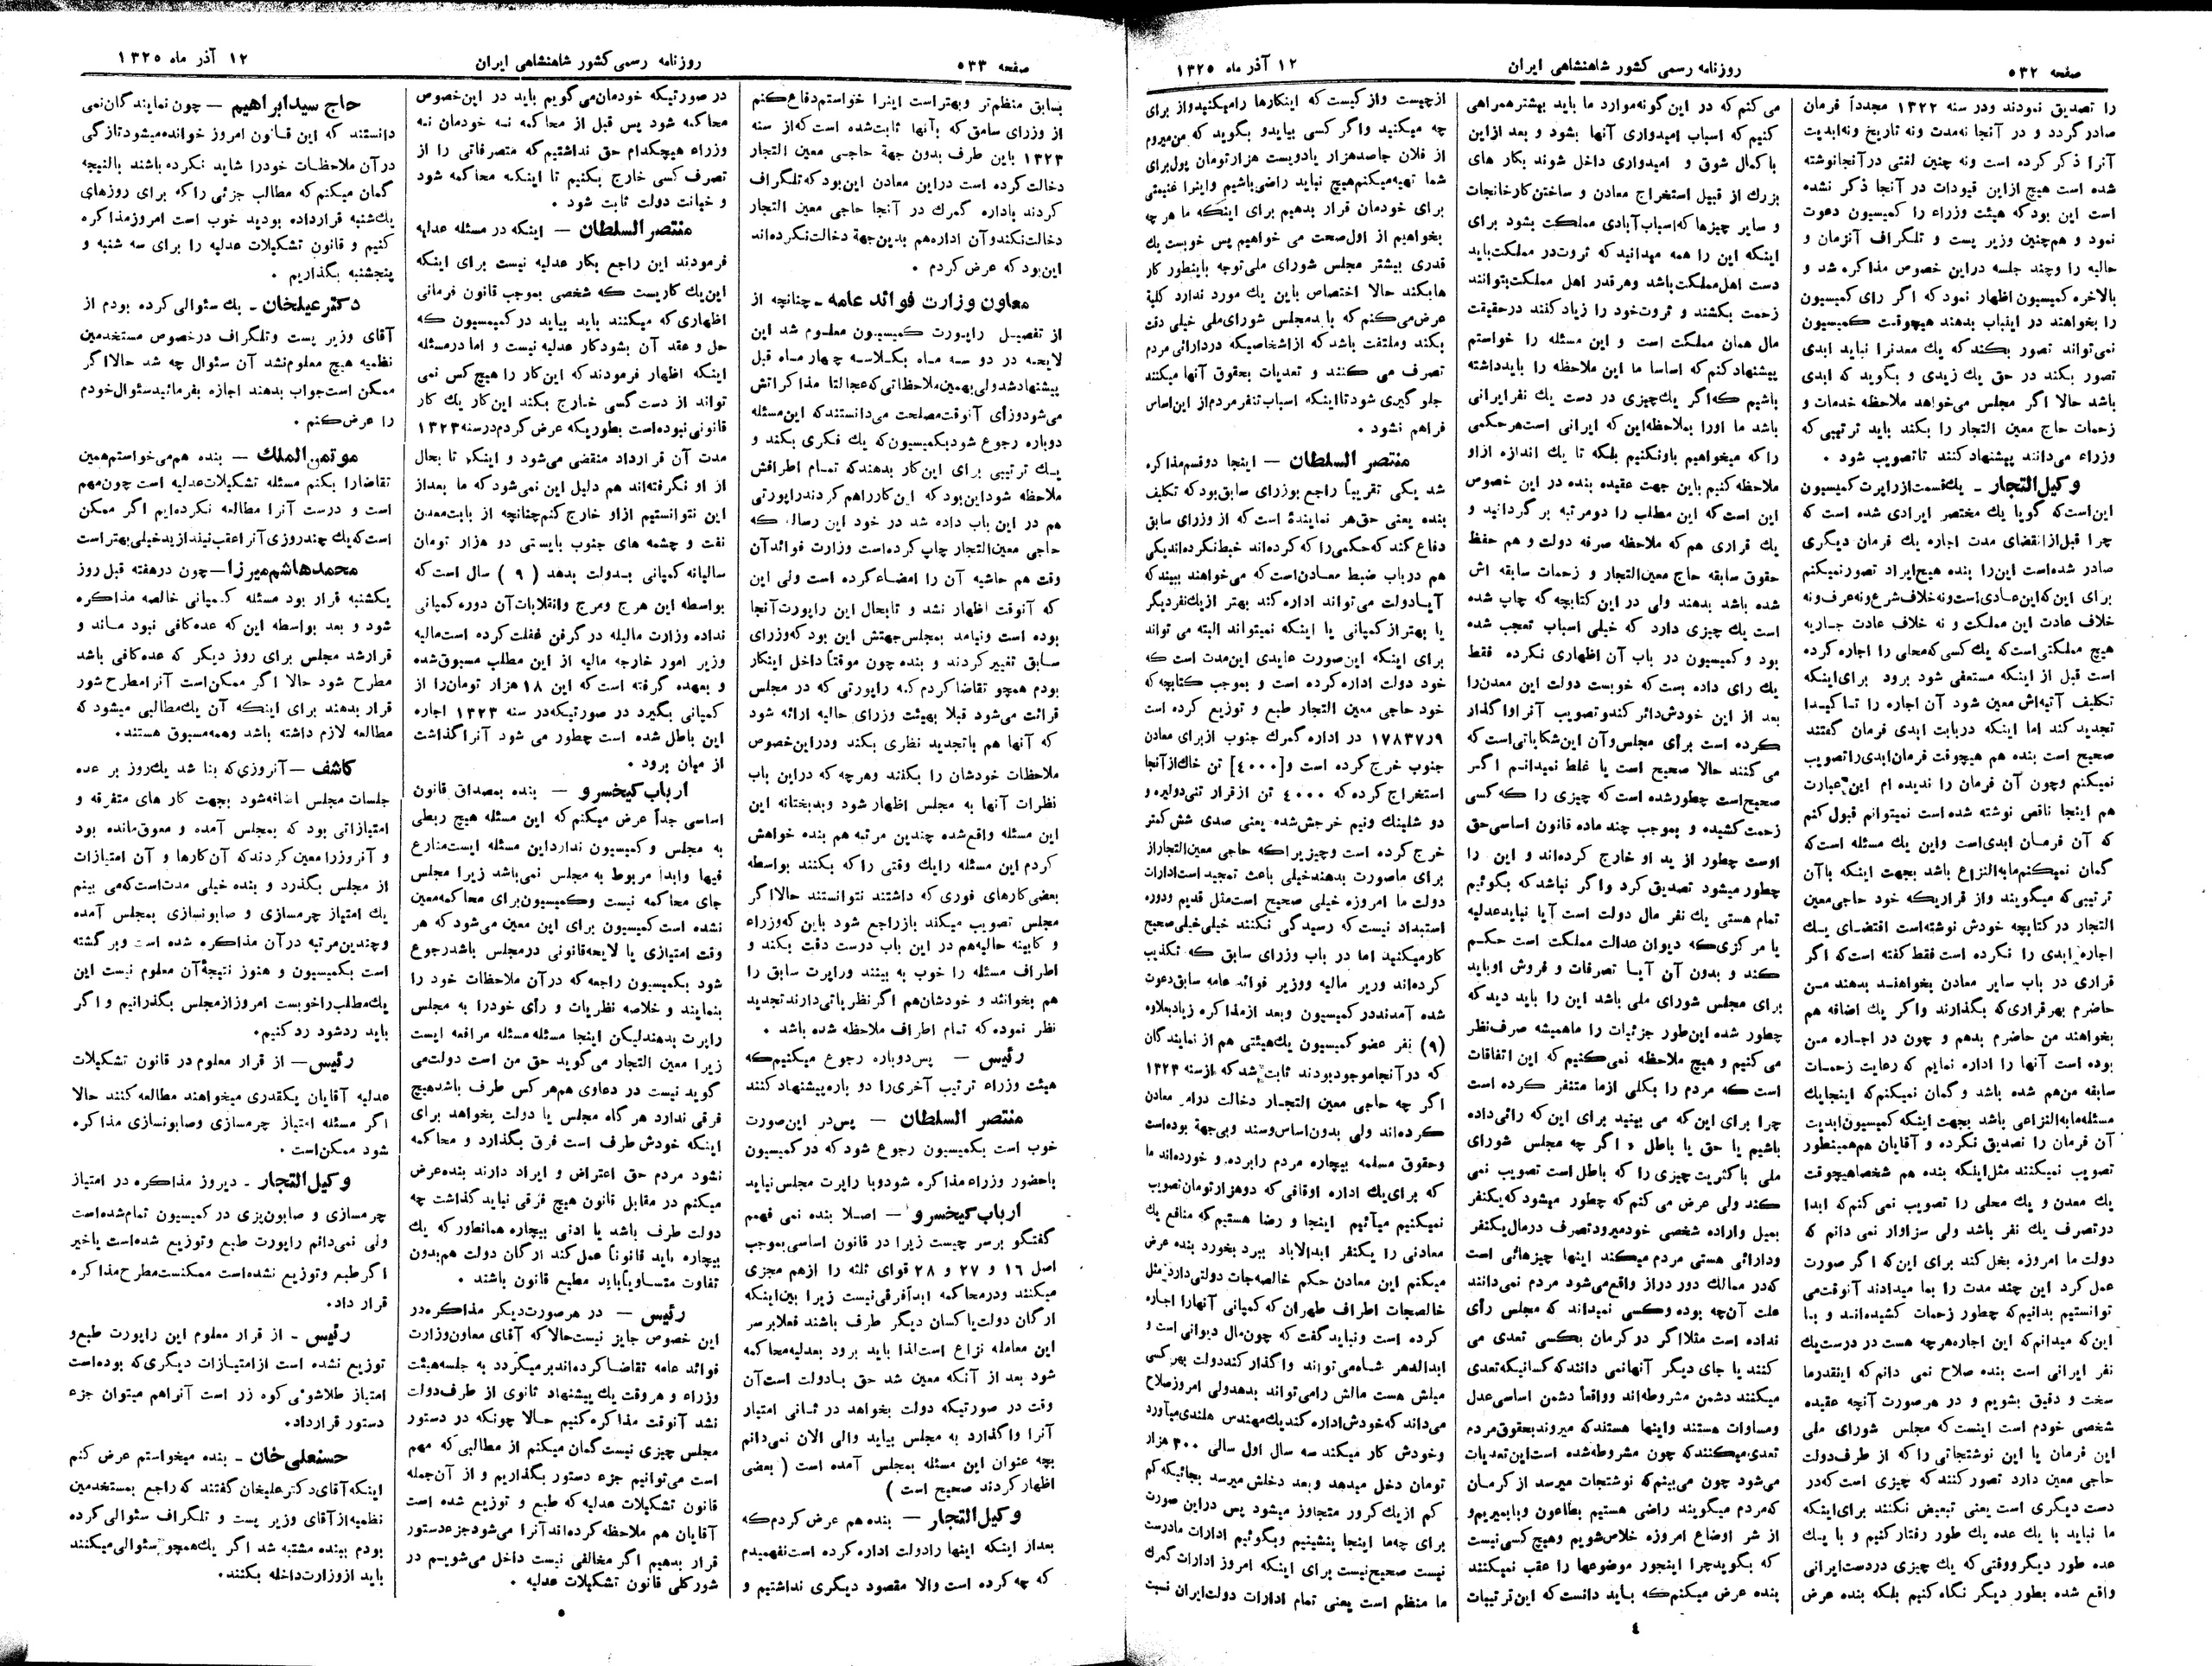 صفحه ۵۳۲
روزنامه رسمی کشور شاهنشاهی ایران
۱۲ آذر ماه ۱۳۲۵
را تصدیق نمودند ودر سنه ۱۳۲۲ مجدداً فرمان
صادر گردد و در آنجا نه‌مدت ونه تاریخ ونه‌ابدیت
آنرا ذکر کرده است ونه چنین لغتی درآنجانوشته
شده است هیچ ازاین قیودات در آنجا ذکر نشده
است این بود که هیئت وزراء را کمیسیون دعوت
نمود و هم‌چنین وزیر پست و تلگراف آنزمان و
حالیه را وچند جلسه دراین خصوص مذاکره شد و
بالاخره کمیسیون اظهار نمود که اگر رای کمیسیون
را بخواهند در اینباب بدهند هیچوقت کمیسیون
نمی‌تواند تصور بکند که یك معدنرا نباید ابدی
تصور بکند در حق یك زیدی و بگوید که ابدی
باشد حالا اگر مجلس می‌خواهد ملاحظه خدمات و
زحمات حاج معین التجار را بکند باید ترتیبی که
وزراء می‌دانند پیشنهاد کنند تاتصویب شود .
وکیل‌التجار ـ یك‌قسمت‌ازراپرت کمیسیون
این‌است‌که گویا یك مختصر ایرادی شده است که
چرا قبل‌ازانقضای مدت اجاره یك فرمان دیگری
صادر شده‌است این‌را بنده هیچ‌ایراد تصورنمیکنم
برای این که‌این‌عادی‌است‌ونه‌خلاف‌شرع‌ونه‌عرف‌ونه
خلاف عادت این مملکت و نه خلاف عادت جساریه
هیچ مملکتی‌است‌که یك کسی‌که‌محلی را اجاره کرده
است قبل از اینکه مستعفی شود برود برای‌اینکه
تکلیف آتیه‌اش معین شود آن اجاره را تاکیدا
تجدید کند اما اینکه دربابت ابدی فرمان گفتند
صحیح است بنده هم هیچوقت فرمان‌ابدی‌راتصویب
نمیکنم وچون آن فرمان را ندیده ام این عبارت
هم اینجا ناقص نوشته شده است نمیتوانم قبول کنم
که آن فرمان ابدی‌است واین یك مسئله است‌که
گمان نمیکنم‌مابه‌النزاع باشد بجهت اینکه باآن
ترتیبی‌که میگویند واز قراریکه خود حاجی‌معین
التجار در کتابچه خودش نوشته‌است اقتضای یك
اجاره ابدی را نکرده است فقط گفته است‌که اگر
قراری در باب سایر معادن بخواهند بدهند من
حاضرم بهرقراری‌که بگذارند واگر یك اضافه هم
بخواهند من حاضرم بدهم و چون در اجاره من
بوده است آنها را اداره نمایم که رعایت زحمات
سابقه من‌هم شده باشد و گمان نمیکنم‌که اینجایك
مسئله‌مابه‌النزاعی باشد بجهت اینکه کمیسیون‌ابدیت
آن فرمان را تصدیق نکرده و آقایان هم‌همینطور
تصویب نمیکنند مثل‌اینکه بنده هم شخصاهیچوقت
یك معدن و یك محلی را تصویب نمی کنم‌که ابدا
درتصرف یك نفر باشد ولی سزاوار نمی دانم که
دولت ما امروزه بخل کند برای این‌که اگر صورت
عمل کرد این چند مدت را بما میدادند آنوقت‌می
توانستیم بدانیم‌که چطور زحمات کشیده‌اند و با
این‌که میدانم‌که این اجاره‌هرچه هست در درست‌یك
نفر ایرانی است بنده صلاح نمی دانم‌که اینقدرما
سخت و دقیق بشویم و در هرصورت آنچه عقیده
شخصی خودم است اینست که مجلس شورای ملی
این فرمان یا این نوشتجاتی راکه از طرف‌دولت
حاجی معین دارد تصور کنند که چیزی است که‌در
دست دیگری است یعنی تبعیض نکنند برای‌اینکه
ما نباید با یك عده یك طور رفتارکنیم و با یك
عده طور دیگر ووقتی که یك چیزی دردست‌ایرانی
واقع شده بطور دیگر نگاه کنیم بلکه بنده عرض
می کنم‌که در این گونه‌موارد ما باید بیشترهمراهی
کنیم‌که اسباب امیدواری آنها بشود و بعد ازاین
باکمال شوق و امیدواری داخل شوند بکار های
بزرك از قبیل استخراج معادن و ساختن کارخانجات
و سایر چیزها که‌اسباب‌آبادی مملکت بشود برای
اینکه این را همه میدانید که ثروت‌در مملکت‌باید
دست اهل‌مملکت‌باشد وهرقدر اهل مملکت‌بتوانند
زحمت بکشند و ثروت‌خود را زیاد کنند درحقیقت
مال همان مملکت است و این مسئله را خواستم
پیشنهاد کنم‌که اساسا ما این ملاحظه را بایدداشته
باشیم که‌اگر یك‌چیزی در دست یك نفرایرانی
باشد ما اورا بملاحظه‌این‌که ایرانی است‌هرحکمی
راکه میخواهیم باونکنیم بلکه تا یك اندازه ازاو
ملاحظه کنیم باین جهت عقیده بنده در این خصوص
این است‌که این مطلب را دومرتبه بر گردانید و
یك قراری هم‌که ملاحظه صرفه دولت و هم حفظ
حقوق سابقه حاج معین‌التجار و زحمات سابقه اش
شده باشد بدهند ولی در این کتابچه‌که چاپ شده
است یك چیزی دارد که خیلی اسباب تعجب شده
بود و کمیسیون در باب آن اظهاری نکرده فقط
یك رای داده بست‌که خوبست دولت این معدن‌را
بعد از این خودش‌دائر کندوتصویب آنراواگذار
کرده است برای مجلس‌وآن این‌شکایاتی‌است‌که
می کنند حالا صحیح است یا غلط نمیدانم اگر
صحیح‌است چطورشده است‌که چیزی را که‌کسی
زحمت‌کشیده و بموجب چند ماده قانون اساسی‌حق
اوست چطور از ید او خارج کرده‌اند و این را
چطور میشود تصدیق کرد واگر نباشدکه بگوئیم
تمام هستی یك نفر مال دولت است آیا نبایدعدلیه
یا مرکزی‌که دیوان عدالت مملکت است حکم
کند و بدون آن آیا تصرفات و فروش اوباید
برای مجلس شورای ملی باشد این را باید دیدکه
چطور شده این‌طور جزئیات را ماهمیشه صرف‌نظر
می کنیم و هیچ ملاحظه نمی‌کنیم‌که این اتفاقات
است که مردم را بکلی ازما متنفر کرده است
چرا برای این‌که می بینید برای این‌که رائی‌داده
باشیم یا حق یا باطل و اگر چه مجلس شورای
ملی باکثریت چیزی را که باطل‌است تصویب نمی
کند ولی عرض می کنم‌که چطور میشودکه‌یکنفر
بمیل واراده شخصی خودمیرودتصرف درمال‌یکنفر
ودارائی هستی مردم میکند اینها چیزهائی است
که‌در ممالك دور دراز واقع‌می‌شود مردم نمی‌دانند
علت آن‌چه بوده وکسی نمیداند که مجلس رأی
نداده است مثلااگر درکرمان بکسی تعدی می
کنند یا جای دیگر آنهانمی دانندکه کسانیکه‌تعدی
میکنند دشمن مشروطه‌اند وواقعاً دشمن اساسی‌عدل
ومساوات هستند واینها هستندکه میروندبحقوق‌مردم
تعدی‌میکنندکه چون مشروطه‌شده است‌این‌تعدیات
می‌شود چون می‌بینم‌که نوشتجات میرسد ازکرمان
که‌مردم میگویند راضی هستیم بطاعون وبابمیریم‌و
از شر اوضاع امروزه خلاص‌شویم وهیچ‌کسی‌نیست
که بگویدچرا اینجور موضوعها را عقب نمیکنند
بنده عرض میکنم‌که باید دانست که این‌ترتیبات
ازچیست وازکیست که اینکارها رامیکنیدواز برای
چه میکنید واگر کسی بیایدو بگوید که من‌میروم
از فلان جاصدهزار یادویست هزارتومان پول‌برای
شما تهیه‌میکنم‌هیچ نباید راضی‌باشیم واینرا غنیمتی
برای خودمان قرار بدهیم برای اینکه ما هرچه
بخواهیم از اول‌صحت می خواهیم پس خوبست یك
قدری بیشتر مجلس شورای ملی‌توجه باینطور کار
هابکند حالا اختصاص باین یك مورد ندارد کلیة
عرض‌می‌کنم‌که بایدمجلس شورای‌ملی خیلی دقت
بکند وملتفت باشدکه ازاشخاصیکه دردارائی مردم
تصرف می کنند و تعدیات بحقوق آنها میکنند
جلو گیری شود تااینکه اسباب‌تنفرمردم‌از این‌اساس
فراهم نشود .
منتصر السلطان — اینجا دوقسم‌مذاکره
شد یکی تقریباً راجع بوزرای سابق‌بودکه تکلیف
بنده یعنی حق‌هر نمایندهٔ است‌که از وزرای سابق
دفاع کند که‌حکمی‌را که‌کرده‌اند خبط‌نکرده‌اندیکی
هم درباب ضبط معادن‌است‌که می‌خواهند ببیندکه
آیادولت می‌تواند اداره‌کند بهتر ازیك‌نفردیگر
یا بهترازکمپانی یا اینکه نمیتواند البته می تواند
برای اینکه این‌صورت عایدی این‌مدت است که
خود دولت اداره‌کرده است و بموجب کتابچه‌که
خود حاجی معین التجار طبع و توزیع کرده است
۱۷۸۳۷ر۹ در اداره گمرك جنوب ازبرای معادن
جنوب خرج کرده است و[۴۰۰۰] تن خاك‌ازآنجا
استخراج کرده که ۴۰۰۰ تن ازقرار تنی‌دولیره و
دو شلینك ونیم خرجش‌شده یعنی صدی شش‌کمتر
خرج کرده است وچیزیراکه حاجی معین‌التجاراز
برای ماصورت بدهندخیلی باعث تمجید است‌ادارات
دولت ما امروزه خیلی صحیح است‌مثل قدیم ودوره
استبداد نیست که رسیدگی نکنند خیلی‌خیلی‌صحیح
کارمیکنید اما در باب وزرای سابق که تکذیب
کرده‌اند وزیر مالیه ووزیر فوائد عامه سابق‌دعوت
شده آمدنددرکمیسیون وبعد ازمذاکره زیادبعلاوه
(۹) نفر عضو کمیسیون یك‌هیئتی هم از نمایندگان
که درآنجاموجودبودند ثابت شدکه ازسنه ۱۳۲۳
اگر چه حاجی معین التجار دخالت درامر معادن
کرده‌اند ولی بدون‌اساس‌وسند وبی‌جهة بوده‌است
وحقوق مسلمه بیچاره مردم رابرده و خورده‌اند ما
که برای‌یك اداره اوقافی‌که دوهزارتومان‌تصویب
نمیکنیم میآئیم اینجا و رضا هستیم‌که منافع یك
معادنی را یکنفر ابدالاباد ببرد بخورد بنده عرض
میکنم این معادن حکم خالصه‌جات دولتی‌دارد مثل
خالصجات اطراف طهران‌که‌کمپانی آنهارا اجاره
کرده است ونبایدگفت که چون‌مال دیوانی است و
ابدالدهر شاه‌می‌تواند واگذار کنددولت بهرکسی
میلش هست مالش رامی‌تواند بدهدولی امروزصلاح
می‌داندکه‌خودش‌اداره‌کندیك‌مهندس هلندی‌میآورد
وخودش کار میکند سه سال اول سالی ۳۰۰ هزار
تومان دخل میدهد وبعد دخلش میرسد بجائیکه‌کم
کم ازیك‌کرور متجاوز میشود پس دراین صورت
برای چه‌ما اینجا بنشینیم وبگوئیم ادارات مادرست
نیست صحیح‌نیست برای اینکه امروز ادارات گمرك
ما منظم است یعنی تمام ادارات دولت‌ایران نسبت
۴
صفحه ۵۳۳
روزنامه رسمی کشور شاهنشاهی ایران
۱۲ آذر ماه ۱۳۲۵
بسابق منظم‌تر وبهتراست اینرا خواستم‌دفاع‌کنم
از وزرای سامق که بآنها ثابت‌شده است‌که‌از سنه
۱۳۲۳ باین طرف بدون جهة حاجی معین التجار
دخالت کرده است دراین معادن این‌بود که‌تلگراف
کردند باداره گمرك در آنجا حاجی معین التجار
دخالت‌نکندوآن اداره‌هم بدین‌جهة دخالت‌نکرده‌اند
این‌بود که عرض کردم .
معاون وزارت فوائد عامه ـ چنانچه از
از تفصیل راپورت کمیسیون معلوم شد این
لایحه در دو سه ماه بکلاسه چهار ماه قبل
پیشنهادشدولی‌بهمین‌ملاحظاتی‌که‌عجالتا مذاکراتش
می‌شودوزأی آنوقت‌مصلحت می‌دانستندکه این‌مسئله
دوباره رجوع شودبکمیسیون‌که یك فکری بکند و
یك ترتیبی برای این‌کار بدهندکه تمام اطرافش
ملاحظه شوداین‌بود که این‌کارراهم کردندراپورتی
هم در این باب داده شد در خود این رساله که
حاجی معین‌التجار چاپ کرده‌است وزارت فوائدآن
وقت هم حاشیه آن را امضاءکرده است ولی این
که آنوقت اظهار نشد و تابحال این راپورت‌آنجا
بوده است ونیامد بمجلس‌جهتش این بود که‌وزرای
سابق تغییرکردند و بنده چون موقتاً داخل اینکار
بودم همچو تقاضا کردم که راپورتی که در مجلس
قرائت می‌شود قبلا بهیئت وزرای حالیه ارائه شود
که آنها هم باتجدید نظری بکند ودراین‌خصوص
ملاحظات خودشان را بکنند وهرچه که دراین باب
نظرات آنها به مجلس اظهار شود وبدبختانه این
این مسئله واقع‌شده چندین مرتبه هم بنده خواهش
کردم این مسئله رایك وقتی راکه بکنند بواسطه
بعضی‌کارهای فوری که داشتند نتوانستند حالااگر
مجلس تصویب میکند بازراجع شود باین که‌وزراء
و کابینه حالیه‌هم در این باب درست دقت بکند و
اطراف مسئله را خوب به بینند وراپرت سابق را
هم بخوانند و خودشان‌هم اگرنظریاتی‌دارندتجدید
نظر نموده که تمام اطراف ملاحظه شده باشد .
رئیس — پس‌دوباره رجوع میکنیم‌که
هیئت وزراء ترتیب آخری‌را دو باره‌پیشنهادکنند
منتصر السلطان — پس‌در این‌صورت
خوب است بکمیسیون رجوع شودکه درکمیسیون
باحضور وزراء مذاکره شودوبا راپرت مجلس‌نیاید
ارباب‌کیخسرو — اصلا بنده نمی فهمم
گفتگو برسر چیست زیرا در قانون اساسی‌بموجب
اصل ۱۶ و ۲۷ و ۲۸ قوای ثلثه را ازهم مجزی
میکنند ودرمحاکمه ابدآفرقی‌نیست زیرا بین‌اینکه
ارگان دولت‌یاکسان دیگر طرف باشند فعلابرسر
این معامله نزاع است‌لذا باید برود بعدلیه‌محاکمه
شود بعد از آنکه معین شد حق بادولت است‌آن
وقت در صورتیکه دولت بخواهد در ثانی امتیار
آنرا واگذارد به مجلس بیاید والی الان نمی‌دانم
بچه عنوان این مسئله بمجلس آمده است (بعضی
اظهارکردند صحیح است)
وکیل‌التجار — بنده هم عرض کردم‌که
بعداز اینکه اینها رادولت اداره‌کرده است‌نفهمیدم
که چه‌کرده است والا مقصود دیگری نداشتیم و
در صورتیکه خودمان‌می‌گویم باید در این‌خصوص
محاکمه شود پس قبل از محاکمه نه خودمان نه
وزراء هیچکدام حق نداشتیم‌که متصرفاتی را از
تصرف‌کسی خارج بکنیم تا اینکه محاکمه شود
و خیانت دولت ثابت شود .
منتصرالسلطان — اینکه در مسئله عدلیه
فرمودند این راجع بکار عدلیه نیست برای اینکه
این‌یك کاریست که شخصی بموجب قانون فرمانی
اظهاری‌که میکنند باید بیاید درکیمسیون که
حل و عقد آن بشودکار عدلیه نیست و اما درمسئله
اینکه اظهار فرمودندکه این‌کار را هیچ‌کس نمی
تواند از دست‌گسی خارج بکند این‌کار یك کار
قانونی‌نبوده‌است بطوریکه عرض کردم‌درسنه ۱۳۲۳
مدت آن قرارداد منقضی می‌شود و اینکه تا بحال
از او نگرفته‌اند هم دلیل این نمی‌شودکه ما بعداز
این نتوانستیم ازاو خارج‌کنم‌چنانچه از بابت‌معدن
نفت و چشمه های جنوب بایستی دو هزار تومان
سالیانه کمپانی بدولت بدهد (۹) سال است‌که
بواسطه این هرج ومرج وانقلابات‌آن دوره‌کمپانی
نداده وزارت مالیله درگرفن غفلت کرده است‌مالیه
وزیر امور خارجه مالیه از این مطلب مسبوق‌شده
و بعهده گرفته است‌که این ۱۸هزار تومان‌را از
کمپانی بگیرد در صورتیکه‌در سنه ۱۳۲۳ اجاره
این باطل شده است چطور می شود آنراگذاشت
از میان برود .
ارباب‌کیخسرو — بنده بمصداق قانون
اساسی جداً عرض میکنم‌که این مسئله هیچ ربطی
به مجلس وکمیسیون ندارداین مسئله ایست‌منارع
فیها وابدا مربوط به مجلس نمی‌باشد زیرا مجلس
جای محاکمه نیست وکمیسیون‌برای محاکمه‌معین
نشده است‌کمیسیون برای این معین می‌شودکه هر
وقت امتیازی یا لایحه‌قانونی درمجلس باشدرجوع
شود بکمیسیون راجعه‌که درآن ملاحظات خود را
بنمایند و خلاصه نظریات و رأی خودرا به مجلس
راپرت بدهندلیکن اینجا مسئله مسئله مرافعه ایست
زیرا معین التجار می‌گوید حق من است دولت‌می
گوید نیست در دعاوی هم‌هرکس طرف باشدهیچ
فرقی ندارد هرگاه مجلس یا دولت بخواهد برای
اینکه خودش طرف است فرق بگذارد و محاکمه
نشود مردم حق اعتراض و ایراد دارند بنده‌عرض
میکنم در مقابل قانون هیچ فرقی نباید گذاشت چه
دولت طرف باشد یا ادنی بیچاره همانطورکه یك
بیچاره باید قانوناً عمل‌کند ارگان دولت هم‌بدون
تفاوت متساویاًباید مطیع قانون باشند .
رئیس — در هرصورت‌دیگر مذاکره‌در
این خصوص جایز نیست‌حالاکه آقای معاون‌وزارت
فوائد عامه تقاضاکرده‌اندبرمیگردد به جلسه‌هیئت
وزراء و هروقت یك پیشنهاد ثانوی از طرف‌دولت
نشد آنوقت مذاکره‌کنیم حالا چونکه در دستور
مجلس چیزی نیست‌گمان میکنم از مطالبی‌که مهم
است می‌توانیم جزء دستور بگذاریم و از آن‌جمله
قانون تشکیلات عدلیه که طبع و توزیع شده است
آقایان هم ملاحظه‌کرده‌اندآنرا می‌شودجزءدستور
قرار بدهیم اگر مخالفی نیست داخل می‌شویم در
شورکلی قانون تشکیلات عدلیه .
حاج سیدابراهیم — چون نمایندگان‌نمی
دانستند که این قانون امروز خوانده‌میشودتازگی
درآن ملاحظات خودرا شاید نکرده باشند بالنیجه
گمان میکنم‌که مطالب جزئی راکه برای روزهای
یك‌شنبه قرارداده بودید خوب است امروزمذاکره
کنیم و قانون تشکیلات عدلیه را برای سه شنبه و
پنجشنبه بگذاریم .
دکترعیلخان ـ یك سئوالی‌کرده بودم از
آقای وزیر پست وتلگراف درخصوص مستخدمین
نظمیه هیچ معلوم‌نشد آن سئوال چه شد حالااگر
ممکن است‌جواب بدهند اجازه بفرمائیدسئوال‌خودم
را عرض‌کنم .
موتمن‌الملك — بنده هم‌می‌خواستم‌همین
تقاضارا بکنم مسئله تشکیلات‌عدلیه است چون‌مهم
است و درست آنرا مطالعه نکرده‌ایم اگر ممکن
است‌که‌یك چندروزی‌آنراعقب‌نیندازیدخیلی‌بهتراست
محمدهاشم‌میرزا — چون درهفته قبل روز
یکشنبه قرار بود مسئله کمپانی خالصه مذاکره
شود و بعد بواسطه این که عده‌کافی نبود ماند و
قرارشد مجلس برای روز دیگر که عده‌کافی باشد
مطرح شود حالا اگر ممکن‌است آنرامطرح‌شور
قرار بدهند برای اینکه آن یك‌مطالبی میشود که
مطالعه لازم داشته باشد وهمه‌مسبوق هستند.
کاشف — آنروزی‌که بنا شد یك‌روز بر عده
جلسات مجلس اضافه‌شود بجهت کار های متفرقه و
امتیازاتی بود که بمجلس آمده و معوق‌مانده بود
و آنروزرا معین‌کردندکه آن‌کارها و آن امتیازات
از مجلس بگذرد و بنده خیلی مدت‌است‌که‌می بینم
یك امتیاز چرمسازی و صابونسازی بمجلس آمده
وچندین‌مرتبه درآن مذاکره شده است وبرگشته
است بکمیسیون و هنوز نتیجهٔ‌آن معلوم نیست این
یك‌مطلب‌راخوبست امروزازمجلس بگذرانیم واگر
باید ردشود ردکنیم.
رئیس — از قرار معلوم در قانون تشکیلات
عدلیه آقایان یکقدری میخواهند مطالعه‌کنند حالا
اگر مسئله امتیاز چرمسازی وصابونسازی مذاکره
شود ممکن‌است .
وکیل‌التجار ـ دیروز مذاکره در امتیاز
چرمسازی و صابون‌پزی درکمیسیون تمام‌شده‌است
ولی نمی‌دانم راپورت طبع وتوزیع شده‌است یاخیر
اگرطبع وتوزیع نشده‌است ممکنست‌مطرح‌مذاکره
قرار داد.
رئیس ـ از قرار معلوم این راپورت طبع‌و
توزیع نشده است ازامتیازات دیگری‌که بوده‌است
امتیاز طلاشوئی‌کوه زر است آنراهم میتوان جزء
دستور قرارداد.
حسنعلی‌خان ـ بنده میخواستم عرض کنم
اینکه‌آقای‌دکترعلیخان گفتند که راجع بمستخدمین
نظمیه‌ازآقای وزیر پست و تلگراف سئوالی‌کرده
بودم ببنده مشتبه شد اگر یك‌همچو سئوالی‌میکنند
باید ازوزارت‌داخله بکنند.
۵